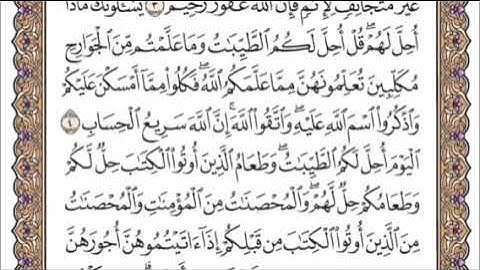 غَيْرَ مُتَجَانِفٍ لِّإِثْمٍ فَإِنَّ ٱللَّهَ غَفُورٌ رَّحِيمٌ ٣ يَسْـَٔلُونَكَ مَاذَآ
أُحِلَّ لَهُمْ ۖ قُلْ أُحِلَّ لَكُمُ ٱلطَّيِّبَـٰتُ ۙ وَمَا عَلَّمْتُم مِّنَ ٱلْجَوَارِحِ
مُكَلِّبِينَ تُعَلِّمُونَهُنَّ مِمَّا عَلَّمَكُمُ ٱللَّهُ ۖ فَكُلُوا۟ مِمَّآ أَمْسَكْنَ عَلَيْكُمْ
وَٱذْكُرُوا۟ ٱسْمَ ٱللَّهِ عَلَيْهِ ۖ وَٱتَّقُوا۟ ٱللَّهَ ۚ إِنَّ ٱللَّهَ سَرِيعُ ٱلْحِسَابِ ٤
ٱلْيَوْمَ أُحِلَّ لَكُمُ ٱلطَّيِّبَـٰتُ ۖ وَطَعَامُ ٱلَّذِينَ أُوتُوا۟ ٱلْكِتَـٰبَ حِلٌّ لَّكُمْ
وَطَعَامُكُمْ حِلٌّ لَّهُمْ ۖ وَٱلْمُحْصَنَـٰتُ مِنَ ٱلْمُؤْمِنَـٰتِ وَٱلْمُحْصَنَـٰتُ
مِنَ ٱلَّذِينَ أُوتُوا۟ ٱلْكِتَـٰبَ مِن قَبْلِكُمْ إِذَآ ءَاتَيْتُمُوهُنَّ أُجُورَهُنَّ